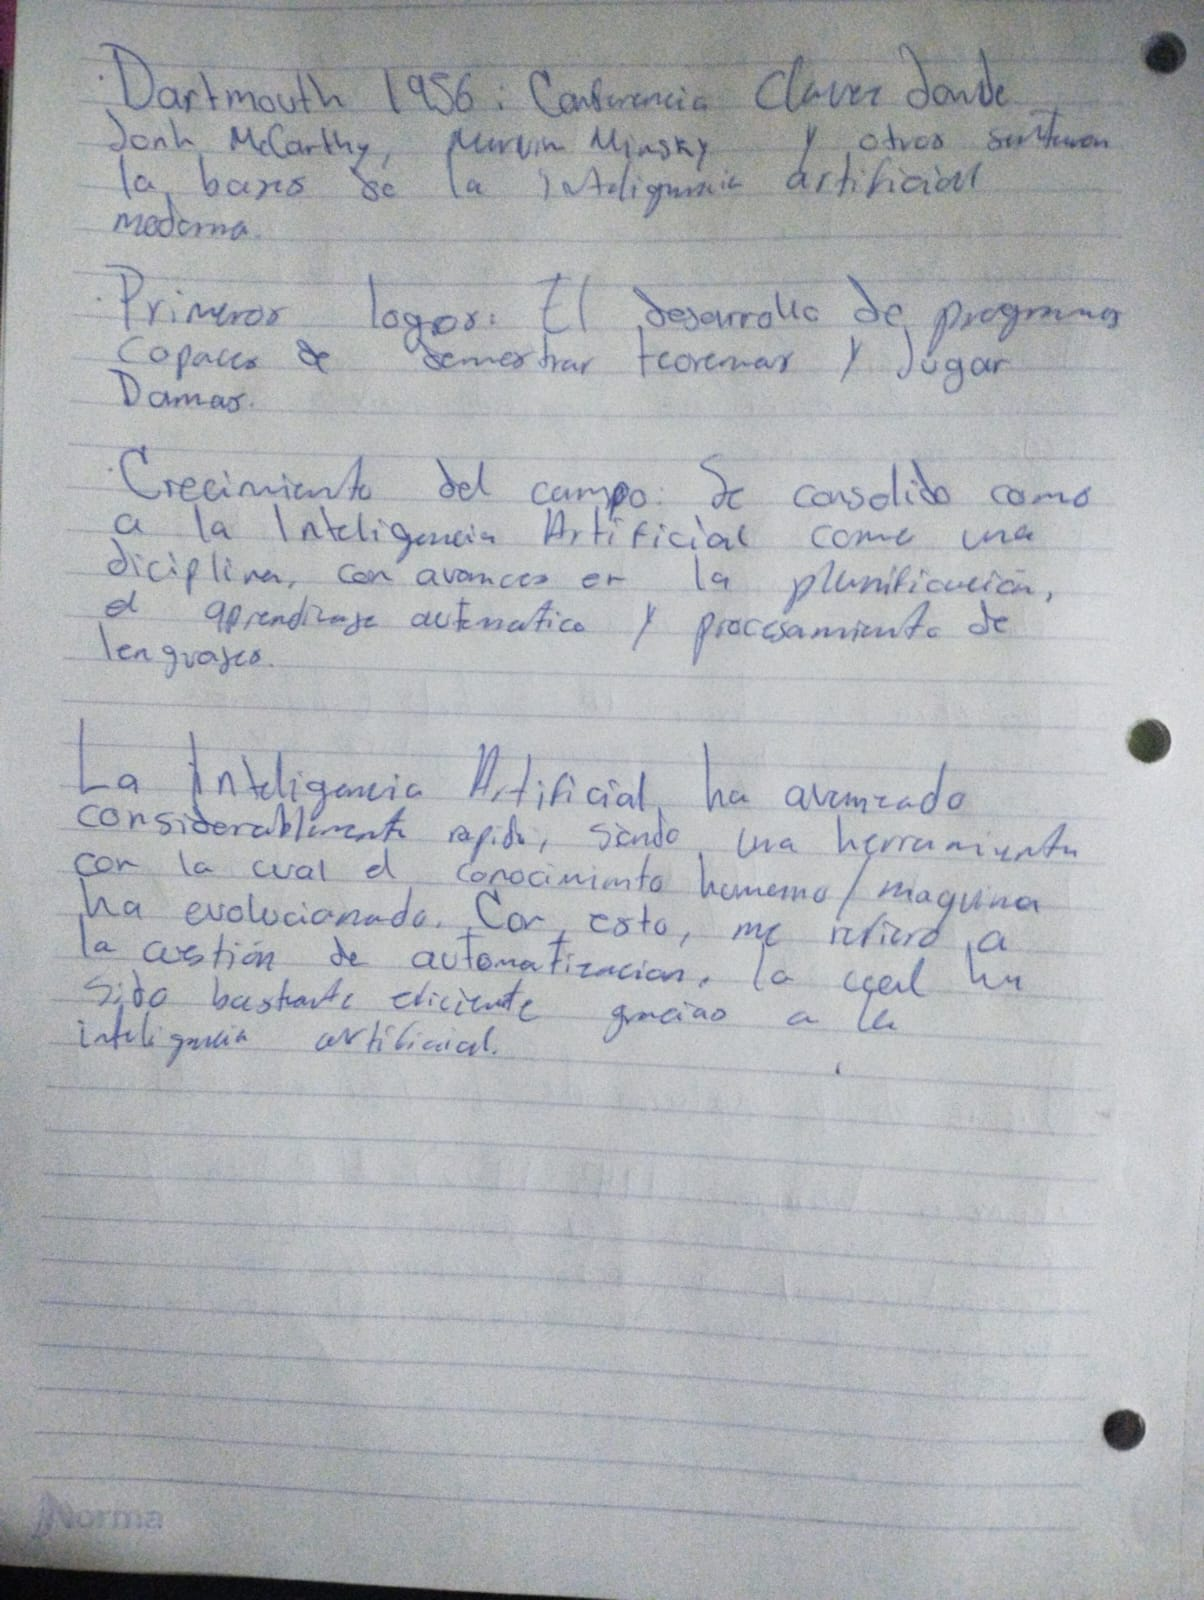 · Dartmouth 1956: Conferencia Claver donde
Jonh McCarthy, Marvin Minsky y otros
la bases de la inteligencia artificial
moderna.
· Primeros logos: El desarrollo de programas
Capaces de demostrar teoremas y Jugar
Damas.
· Crecimiento del campo: Se consolido como
a la Inteligencia Artificial como una
diciplina, con avances en la planificación,
el aprendizaje automatico y procesamiento de
lenguajes.
La Inteligencia Artificial, ha avanzado
considerablemente rapido, siendo una herramienta
con la cual el conocimiento humano/maquina
ha evolucionado. Con esto, me refiero a
la custión de automatización, la cual ha
sido bastante eficiente gracias a la
inteligencia artificial.
Norma